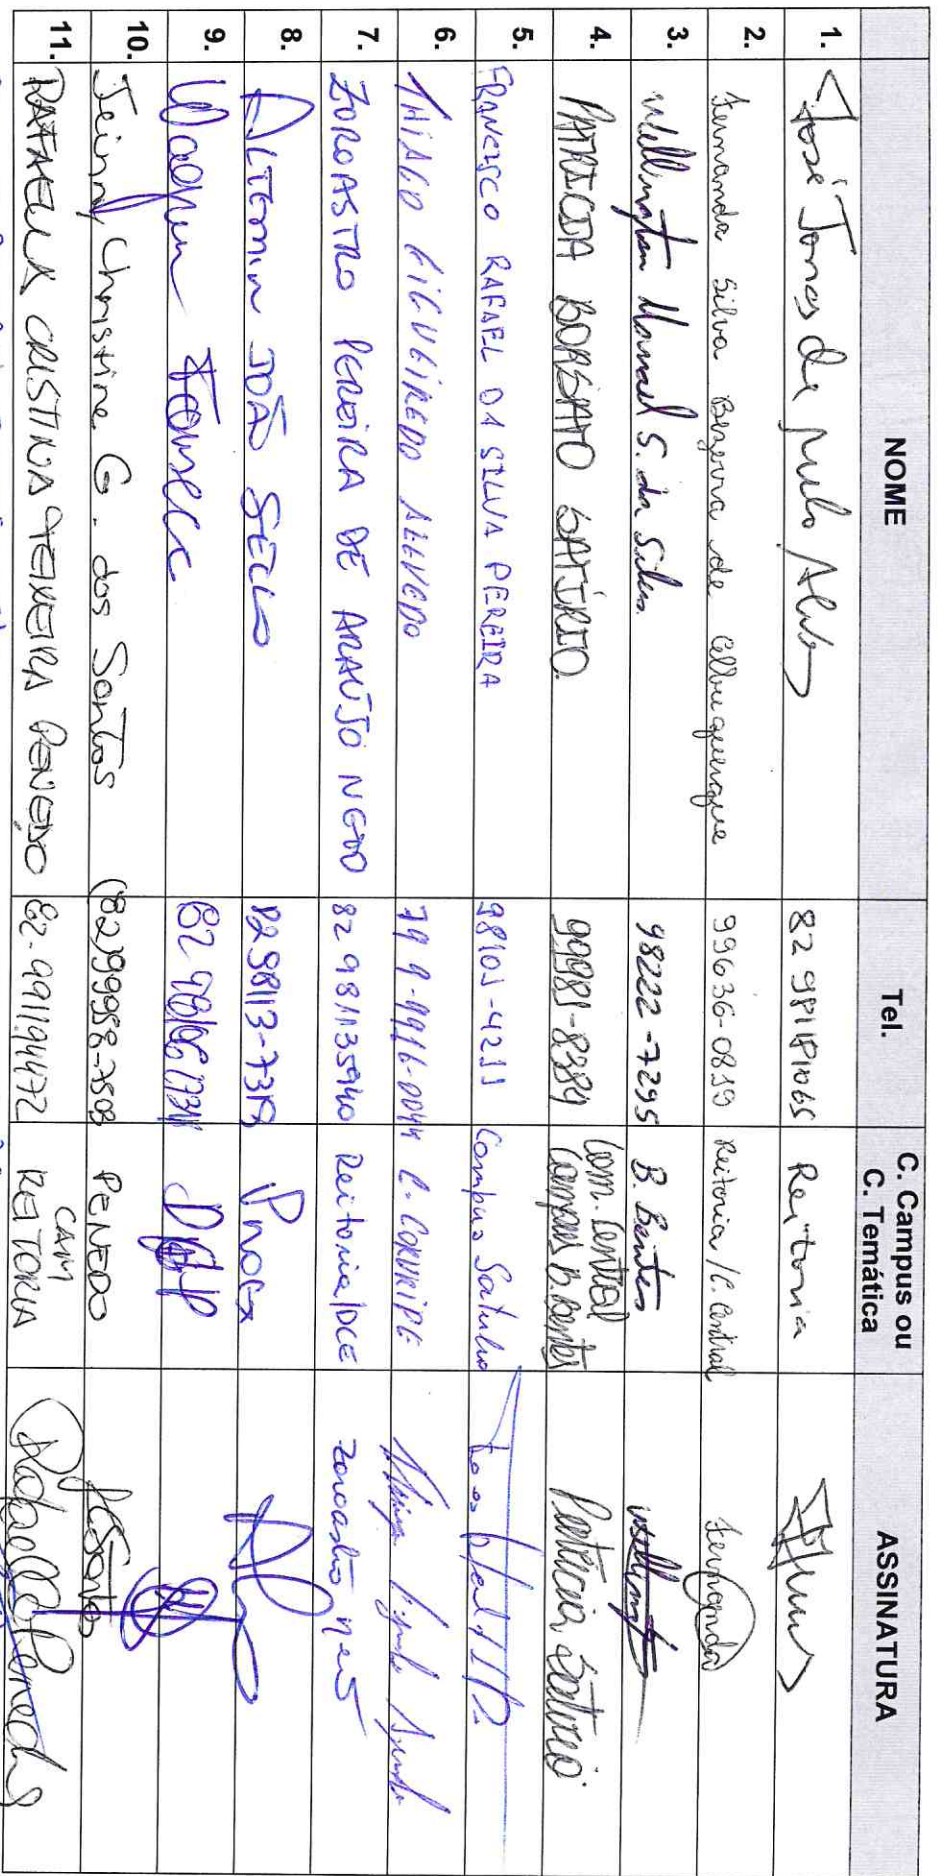 NOME Tel. C. Campus ou C. Temática ASSINATURA
1. José Jonas de Melo Alves Reitoria
2. Fernanda Silva Bezerra de Albuquerque 99636-0819 Reitoria / C. Central Fernanda
3. Wellington Manoel S. da Silva 98222-7295 B. Bentes Wellington
4. PATRICIA BORSATO SATÍRIO 99981-8384 Com. Central Campus B. Bentes Patricia Satirio
5. FRANCISCO RAFAEL DA SILVA PEREIRA 98101-4211 Campus Satuba
6. THIAGO FIGUEIREDO AZEVEDO 79 9-9916-0044 C. CORURIPE Thiago
7. ZOROASTRO PEREIRA DE ARAÚJO NETO 82 981135940 Reitoria/DCE Zoroastro Neto
8. ALTEMIR JOÃO SECCO 82 98113-7319
9. Wagner Fonseca
10. Jeinny Christine G. dos Santos (82) 99958-7508 PENEDO
11. RAFAELLA CRISTINA TEIXEIRA PENEDO 82-991194472 CAM REITORIA Rafaella Penedo